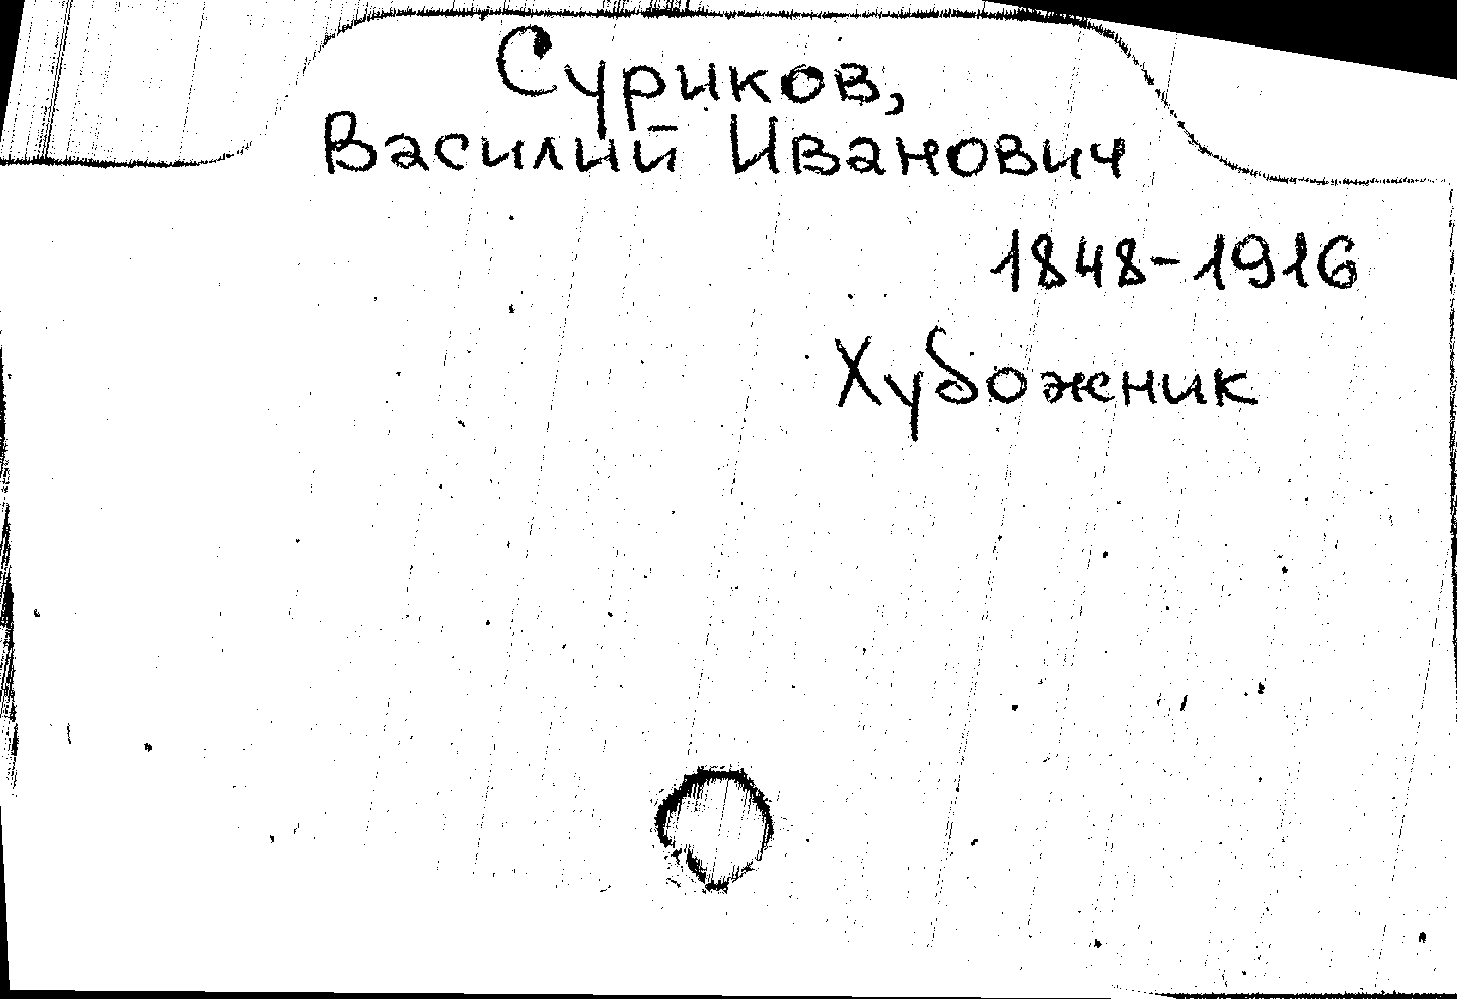 Суриков,
Василий Иванович
1848-1916
Художник